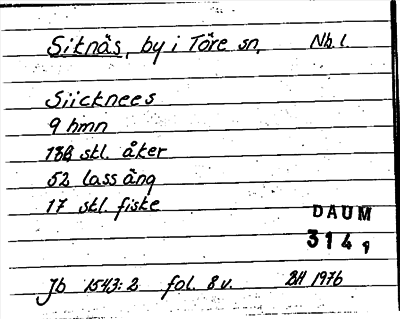 Siknäs, by i Töre sn, Nb l.
Siicknees
9 hmn
188 skl. åker
52 lass äng
17 skl. fiske
DAUM
314 9
Jb 1543:2 fol. 8 v. BH 1976